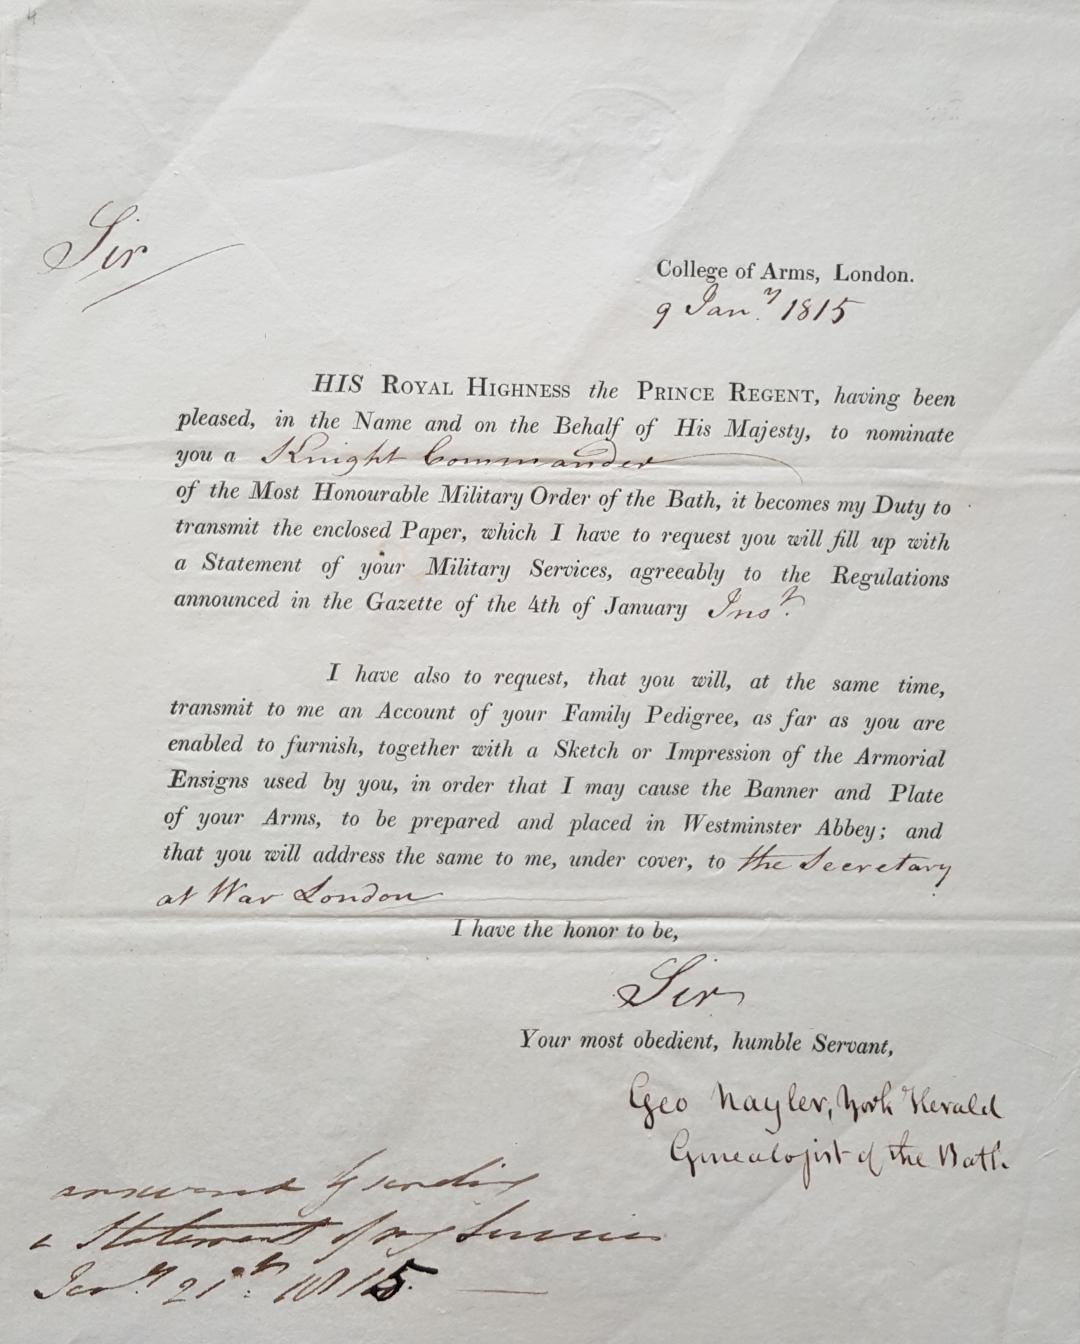 Sir
College of Arms, London.
9 Jan.y 1815
HIS ROYAL HIGHNESS the PRINCE REGENT, having been
pleased, in the Name and on the Behalf of His Majesty, to nominate
you a Knight Commander
of the Most Honourable Military Order of the Bath, it becomes my Duty to
transmit the enclosed Paper, which I have to request you will fill up with
a Statement of your Military Services, agreeably to the Regulations
announced in the Gazette of the 4th of January Inst.
I have also to request, that you will, at the same time,
transmit to me an Account of your Family Pedigree, as far as you are
enabled to furnish, together with a Sketch or Impression of the Armorial
Ensigns used by you, in order that I may cause the Banner and Plate
of your Arms, to be prepared and placed in Westminster Abbey; and
that you will address the same to me, under cover, to the Secretary
at War London
I have the honor to be,
Sir
Your most obedient, humble Servant,
Geo Nayler, York Herald
Genealogist of the Bath.
answered by sending
a Statement of my Services
Jan.y 21st. 1815.